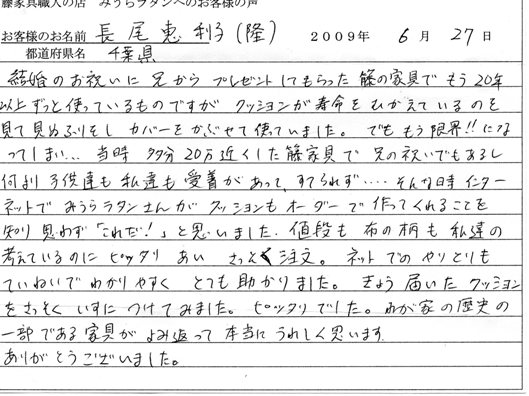 籐家具職人の店 みうらラタンへのお客様の声
お客様のお名前 長尾恵利子(隆) 2009年 6月 27日
都道府県名 千葉県
結婚のお祝いに兄からプレゼントしてもらった籐の家具でもう20年
以上ずっと使っているものですがクッションが寿命をむかえているのを
見て見ぬふりをし カバーをかぶせて使っていました。でももう限界!!にな
ってしまい… 当時 多分20万近くした籐家具で兄の祝いでもあるし
何より子供達も私達も愛着があって、すてられず‥‥そんな時インター
ネットでみうらラタンさんがクッションもオーダーで作ってくれることを
知り思わず「これだ!」と思いました。値段も布の柄も私達の
考えているのにピッタリあいさっそく注文。ネットでのやりとりも
ていねいでわかりやすくとても助かりました。きょう届いたクッション
をさっそくいすにつけてみました。ピッタリでした。わが家の歴史の
一部である家具がよみ返って本当にうれしく思います。
ありがとうございました。